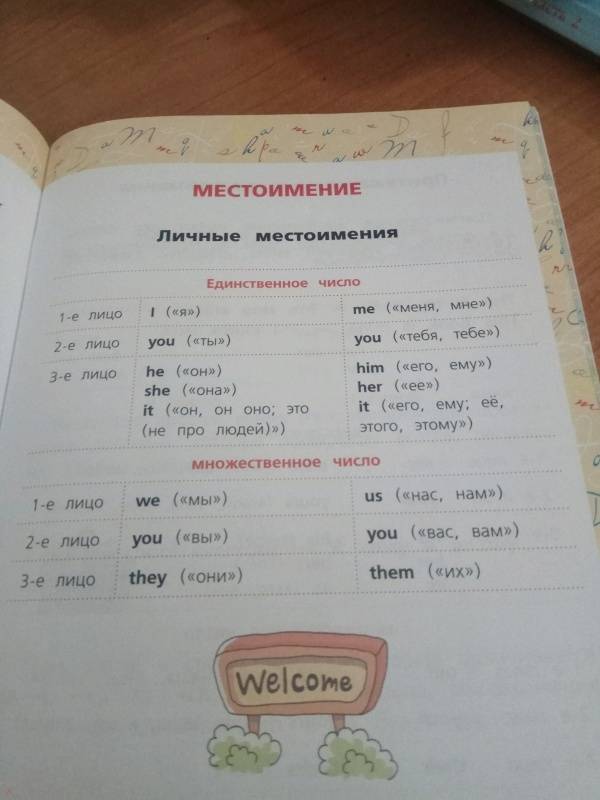 часть 2
МЕСТОИМЕНИЕ
Личные местоимения
Единственное число
1-е лицо I («я») me («меня, мне»)
2-е лицо you («ты») you («тебя, тебе»)
3-е лицо he («он») him («его, ему»)
she («она») her («ее»)
it («он, он оно; это it («его, ему; её,
(не про людей)») этого, этому»)
множественное число
1-е лицо we («мы») us («нас, нам»)
2-е лицо you («вы») you («вас, вам»)
3-е лицо they («они») them («их»)
Welcome